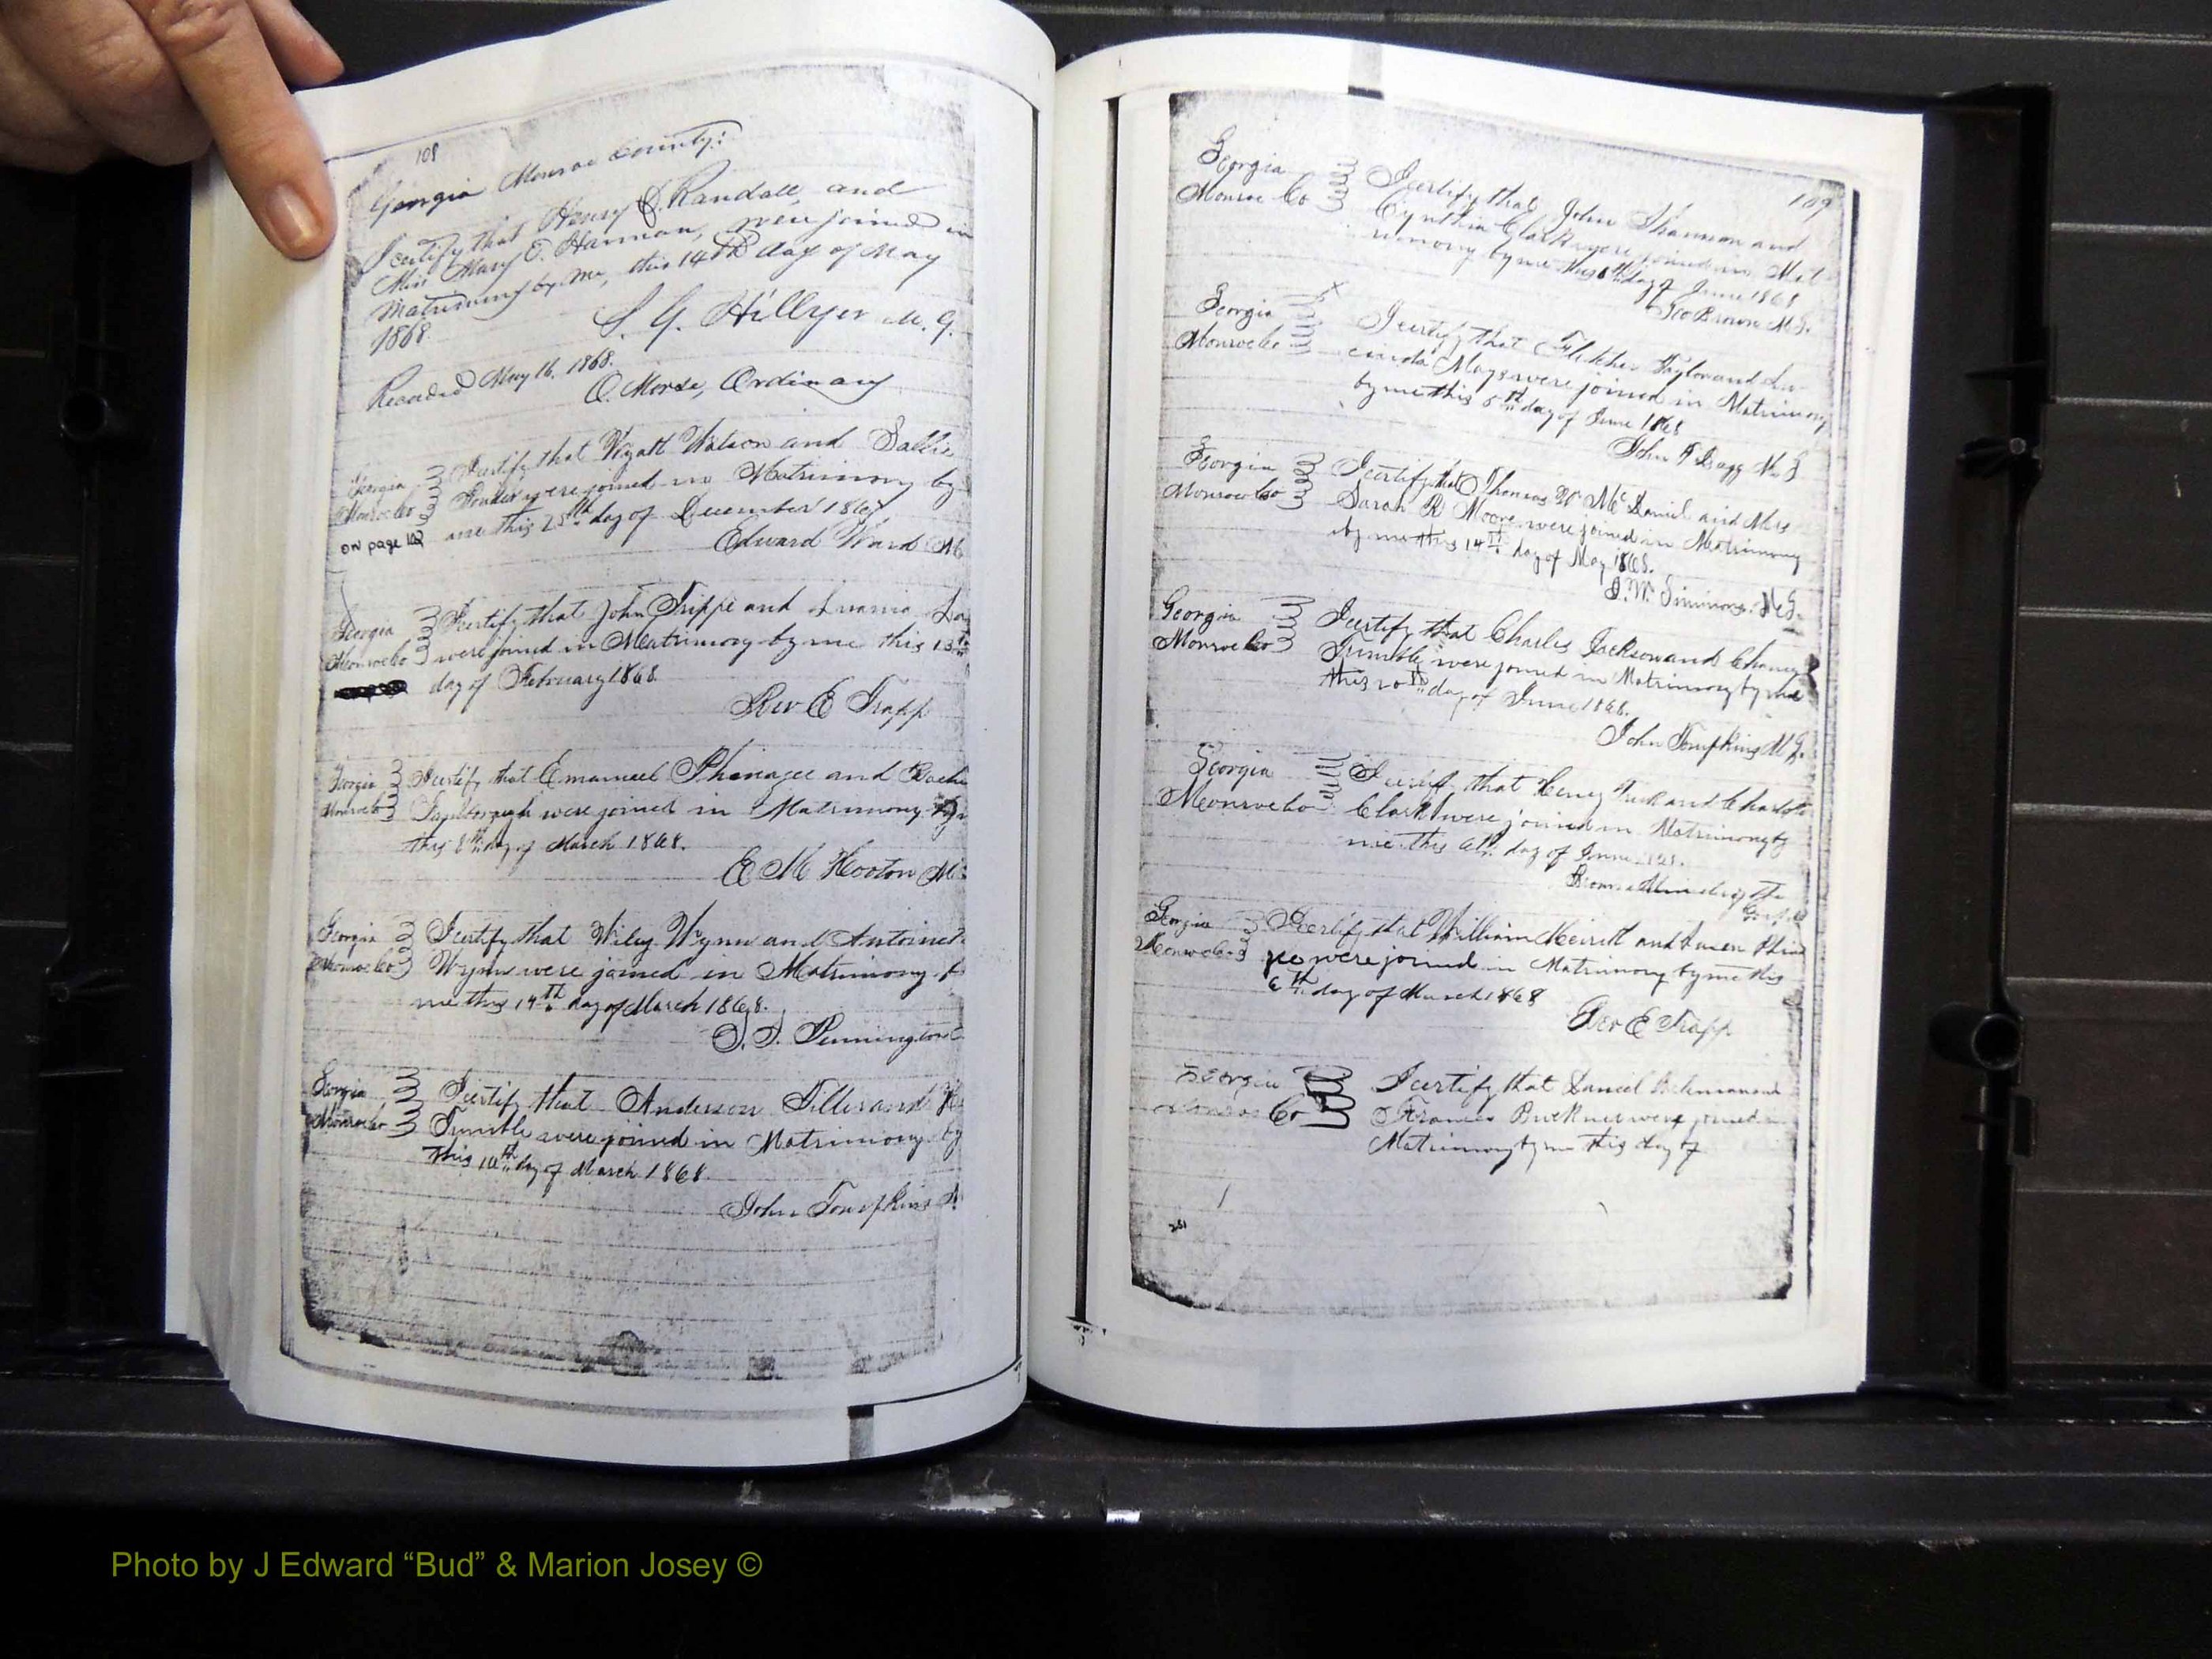 108
Georgia Monroe County:
I certify that Henry J. Randall, and
Miss Mary E. Hannan, were joined in
Matrimony by me, this 14th day of May
1868.
S. G. Hillyer M. G.
Recorded May 16. 1868.
O. Morse, Ordinary
Georgia I certify that Wyatt Watson and Sallie
Monroe Co were joined in Matrimony by
on page 102 me this 25th day of December 1867
Edward Ward M
Georgia I certify that John Trippe and
Monroe Co were joined in Matrimony by me this 13th
day of February 1868.
Rev E Trapp
Georgia I certify that Emanuel Phinazee and
Monroe Co were joined in Matrimony
this 8th day of March 1868.
E M Hooton M
Georgia I certify that Wiley Wynn and Antoinet
Monroe Co Wynn were joined in Matrimony b
me this 14th day of March 1868.
Pennington
Georgia I certify that Anderson and
Monroe Co Trimble were joined in Matrimony by
this 10th day of March 1868.
John Tompkins
109
Georgia I certify that John Shannon and
Monroe Co Cynthia Clark were joined in Mat-
rimony by me this 6th day of June 1868
Geo Brown M.G.
Georgia I certify that Fletcher Taylor and Lu-
Monroe Co cinda Mays were joined in Matrimony
by me this 5th day of June 1868
John T Bragg M G
Georgia I certify that Thomas W McDaniel and Mrs
Monroe Co Sarah R Moore were joined in Matrimony
by me this 14th day of May 1868.
J. W. Simmons. M G.
Georgia I certify that Charles Jackson and Chaney
Monroe Co Trimble were joined in Matrimony by me
this 20th day of June 1868.
John Tompkins M G.
Georgia I certify that Henry and Charlotte
Monroe Co Clark were joined in Matrimony by
me this 6th day of June
Brown Minister of the
Gospel
Georgia I certify that William and
Monroe Co were joined in Matrimony by me this
6th day of March 1868
Rev E Trapp
Georgia I certify that Daniel
Monroe Co Frances Buckner were joined in
Matrimony by me this day of
Photo by J Edward “Bud” & Marion Josey ©